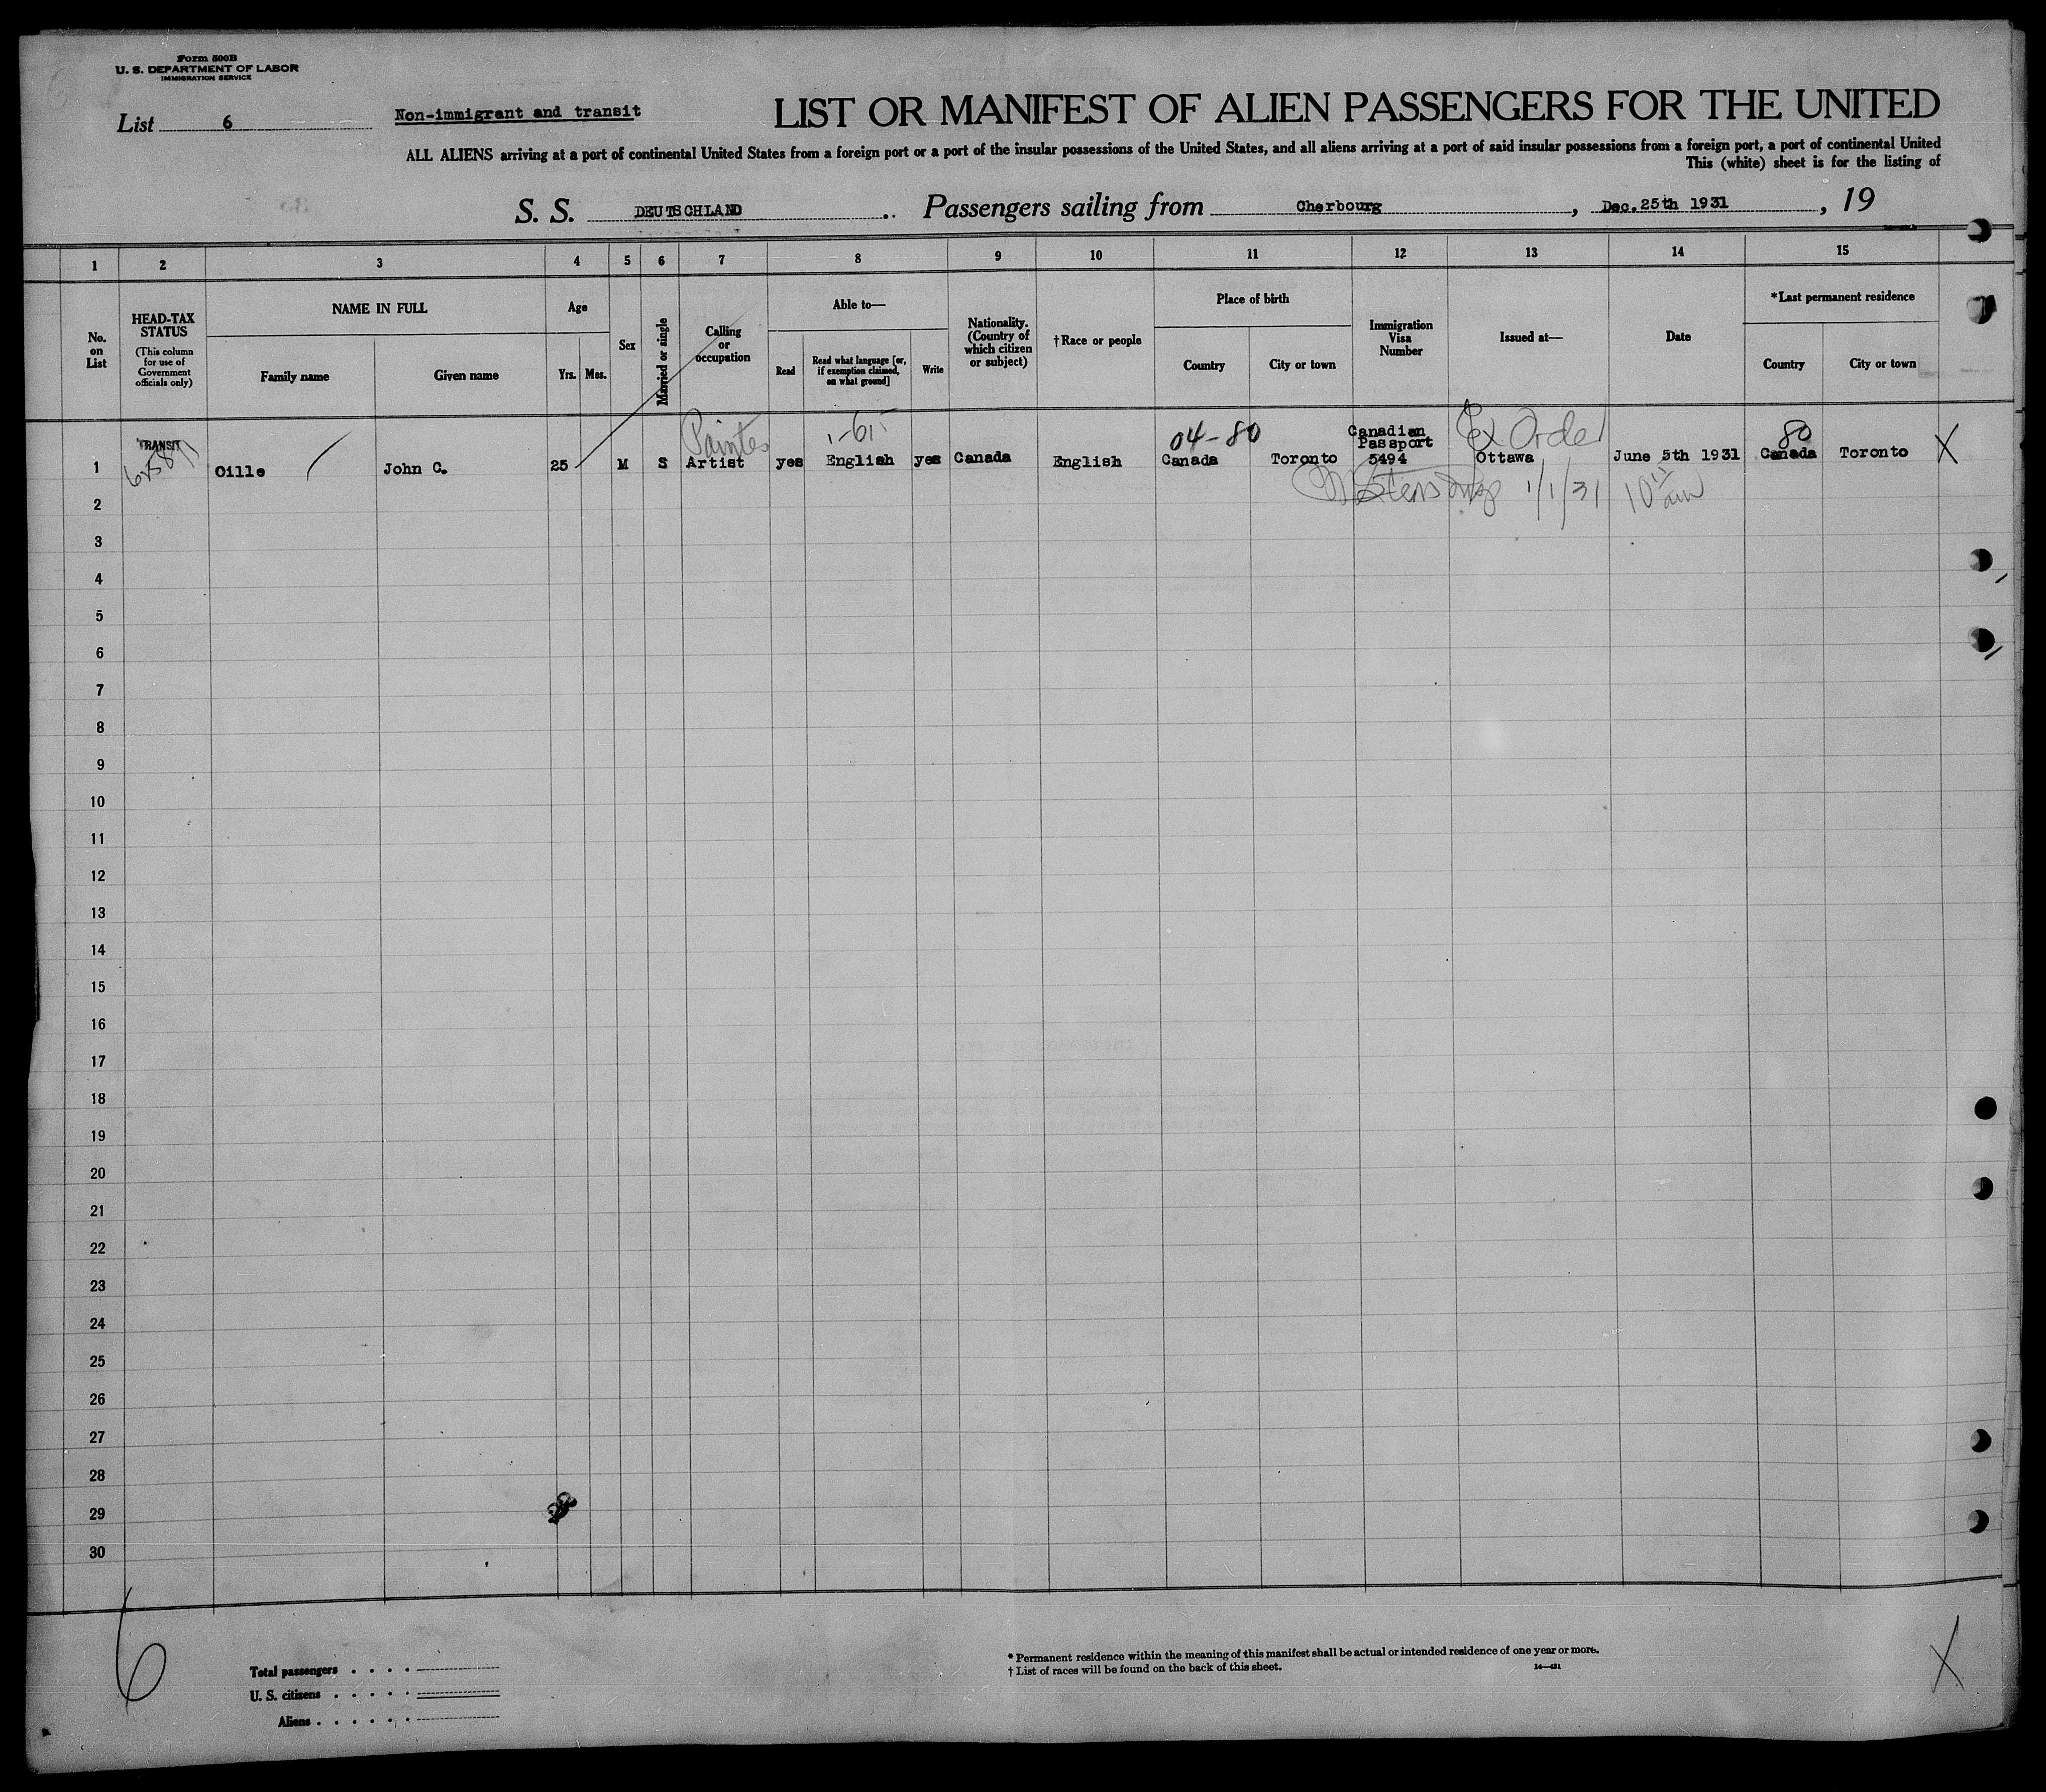 Form 500B
U. S. DEPARTMENT OF LABOR
IMMIGRATION SERVICE
List 6
Non-immigrant and transit
LIST OR MANIFEST OF ALIEN PASSENGERS FOR THE UNITED
ALL ALIENS arriving at a port of continental United States from a foreign port or a port of the insular possessions of the United States, and all aliens arriving at a port of said insular possessions from a foreign port, a port of continental United
This (white) sheet is for the listing of
S. S. DEUTSCHLAND Passengers sailing from Cherbourg, Dec. 25th 1931, 19
1 2 3 4 5 6 7 8 9 10 11 12 13 14 15
No. on List
HEAD-TAX STATUS
(This column for use of Government officials only)
NAME IN FULL
Family name
Given name
Age
Yrs. Mos.
Sex
Married or single
Calling or occupation
Able to—
Read
Read what language [or, if exemption claimed, on what ground]
Write
Nationality. (Country of which citizen or subject)
†Race or people
Place of birth
Country
City or town
Immigration Visa Number
Issued at—
Date
*Last permanent residence
Country
City or town
Painter 1-615 04-80 Canadian Passport Ex Order 80
TRANSIT
1 Oille John C. 25 M S Artist yes English yes Canada English Canada Toronto 5494 Ottawa June 5th 1931 Canada Toronto X
1/1/31 10 15 am
2
3
4
5
6
7
8
9
10
11
12
13
14
15
16
17
18
19
20
21
22
23
24
25
26
27
28
29
30
6
X
Total passengers . . . .
U. S. citizens . . . . .
Aliens . . . . . .
* Permanent residence within the meaning of this manifest shall be actual or intended residence of one year or more.
† List of races will be found on the back of this sheet.
14—431